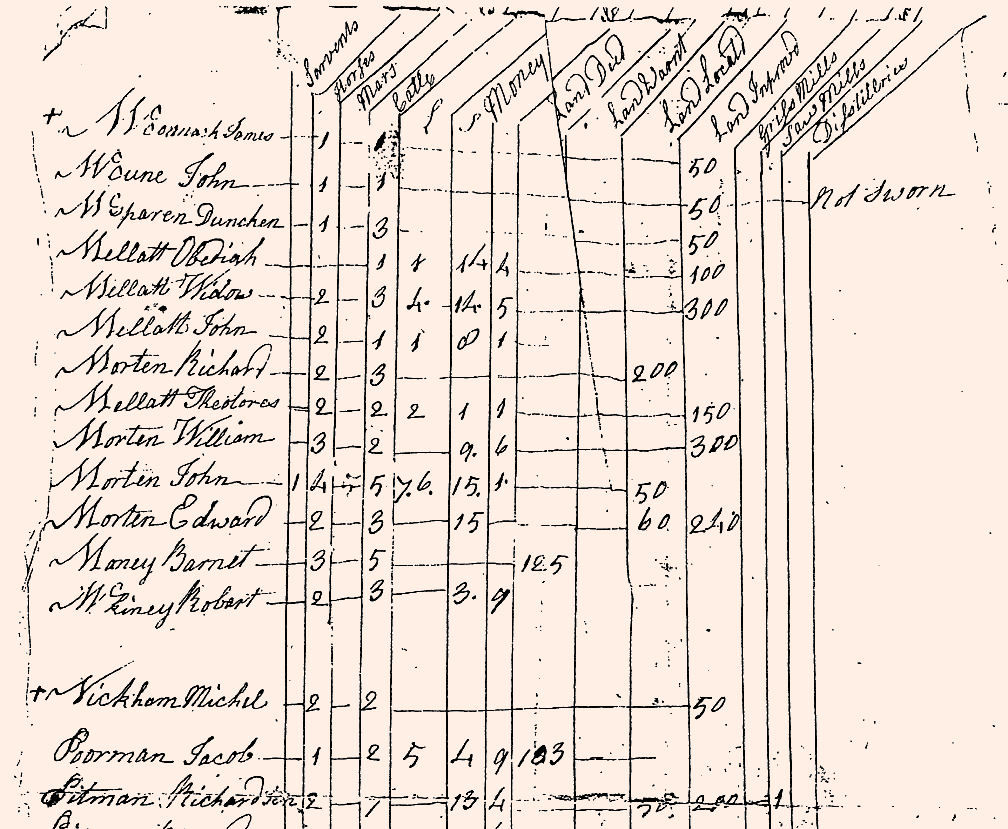 Sarvents Horses Mars Catle £ s Money Land Did Land Warnt Land Locatd Land Improvd Grifs Mills Saw Mills Difstilleries
+ McConnach James 1 50
McCune John 1 1 50 not Sworn
McSparen Dunchen 1 3 50
Mellatt Obediah 1 1 14 4 100
Mellatt Widow 2 3 4 14 5 300
Mellatt John 2 1 1 8 1
Morten Richard 2 3 200
Mellatt Theodores 2 2 2 1 1 150
Morten William 3 2 9. 6 300
Morten John 1 4 5 7.6. 15. 1. 50
Morten Edward 2 3 15 60 240
Money Barnet 3 5 125
McKiney Robart 2 3 3. 9
+ Nickham Michel 2 2 50
Poorman Jacob 1 2 5 4 9 183
Pitman Richardson 2 1 13 4 50 200 1